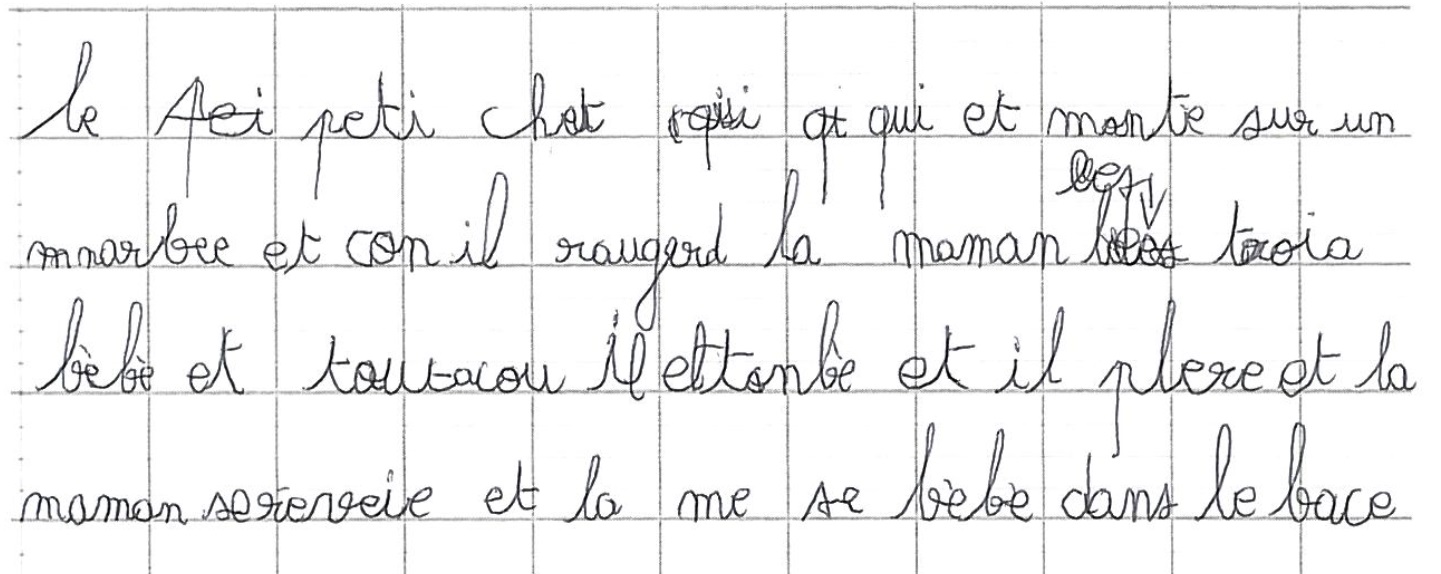 le peti chat qui et monte sur un
mnarbre et con il raugard la maman les troia
bèbè et toutacou il ettonbè et il plere et la
maman sereveie et la me se bèbè dans le bace